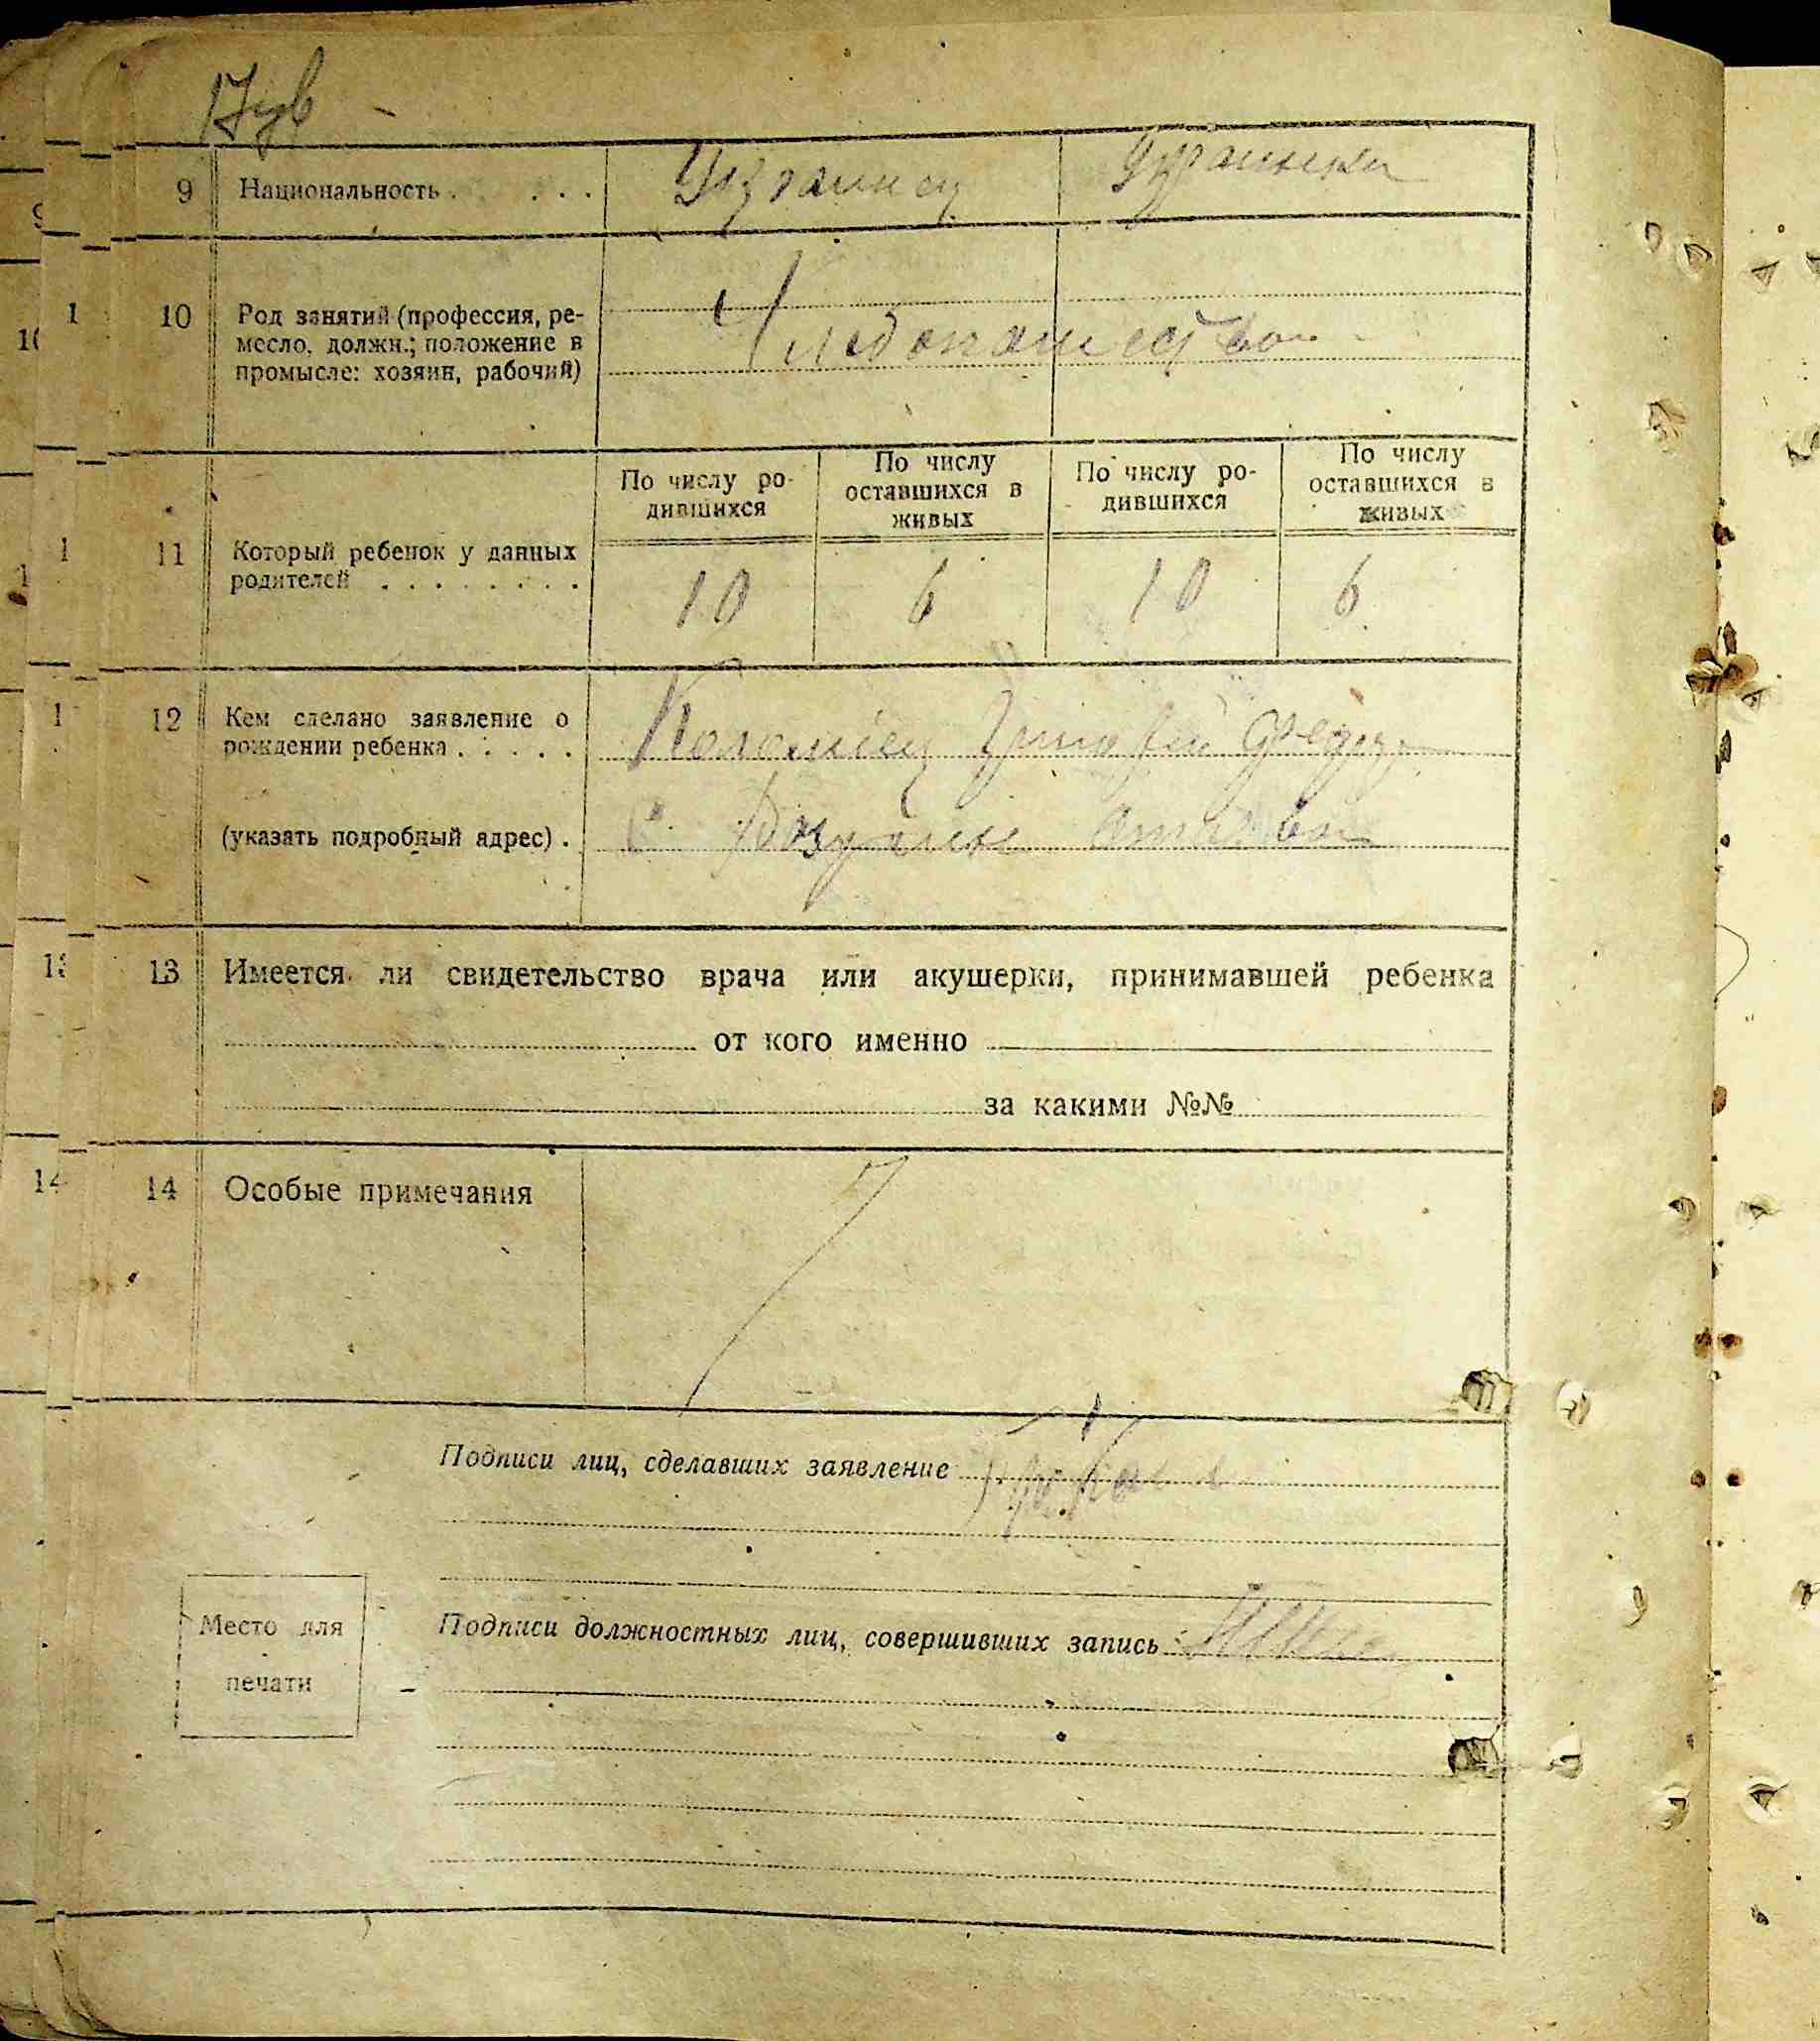 9 Национальность . . . . Украинец Украинка
10 Род занятий (профессия, ре-
месло, должн.; положение в
промысле: хозяин, рабочий)
Хлебопашество
По числу ро-
дившихся
По числу
оставшихся в
живых
По числу ро-
дившихся
По числу
оставшихся в
живых
11 Который ребенок у данных
родителей . . . . . . . .
10 6 10 6
12 Кем сделано заявление о
рождении ребенка . . . . .
Коломіец
(указать подробный адрес) .
с.
13 Имеется ли свидетельство врача или акушерки, принимавшей ребенка
от кого именно
за какими №№
14 Особые примечания
Подписи лиц, сделавших заявление
Место для
печати
Подписи должностных лиц, совершивших запись